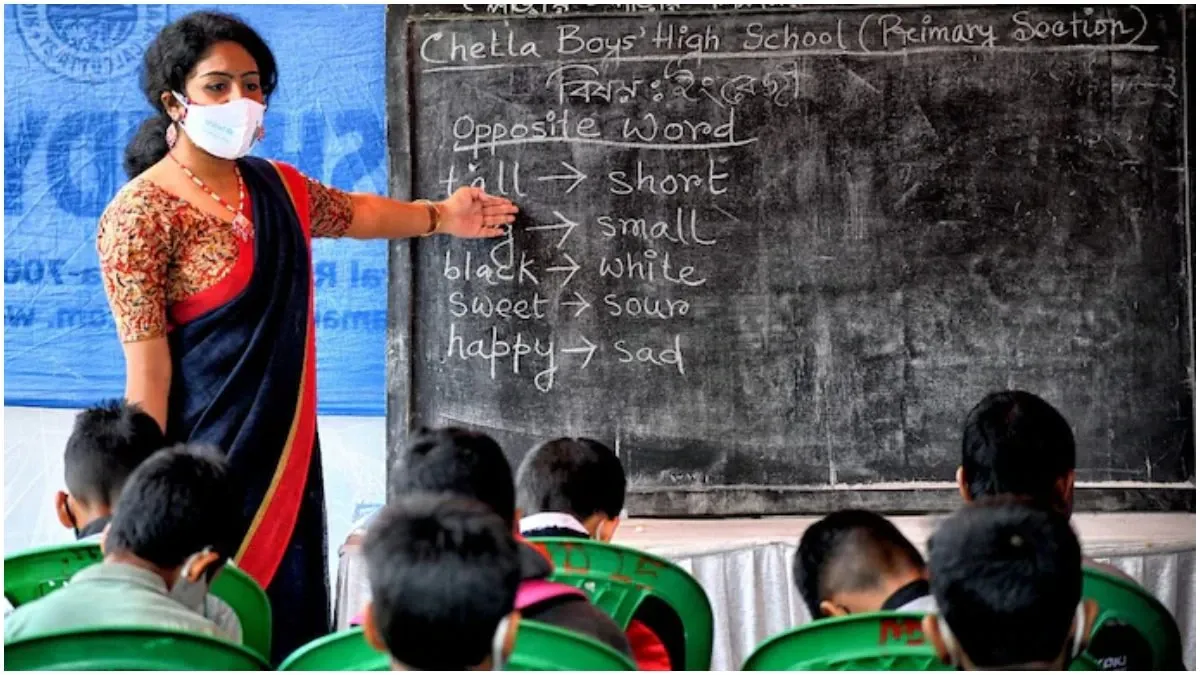 Chetla Boys' High School (Primary Section)
বিষয় : ইংরেজী
Opposite Word
tall → short
g → small
black → white
sweet → sour
happy → sad